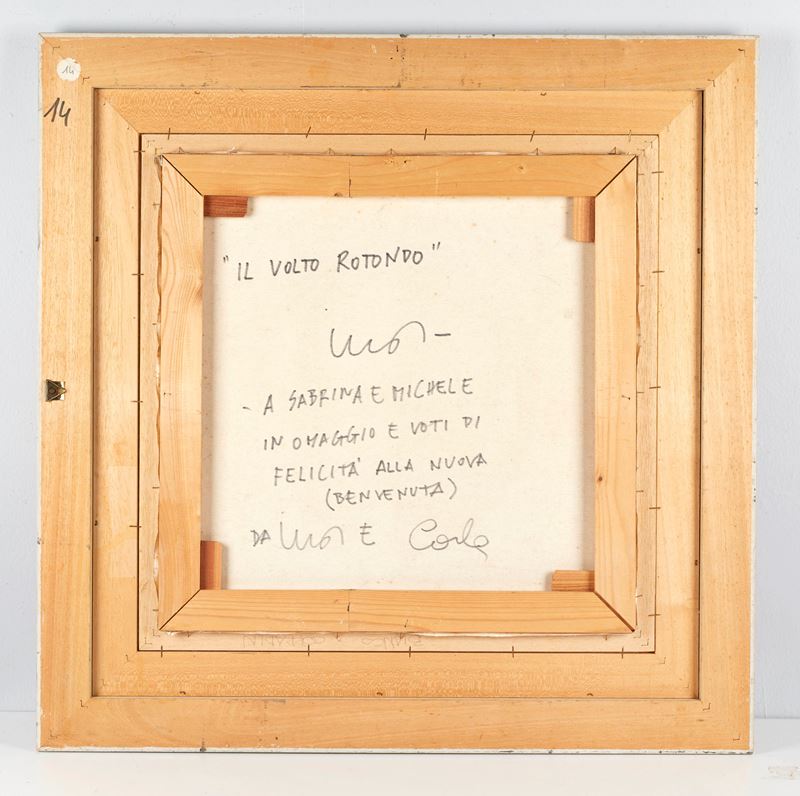 14
14
"IL VOLTO ROTONDO"
- A SABRINA E MICHELE
IN OMAGGIO E VOTI DI
FELICITÀ ALLA NUOVA
(BENVENUTA)
DA E Carla